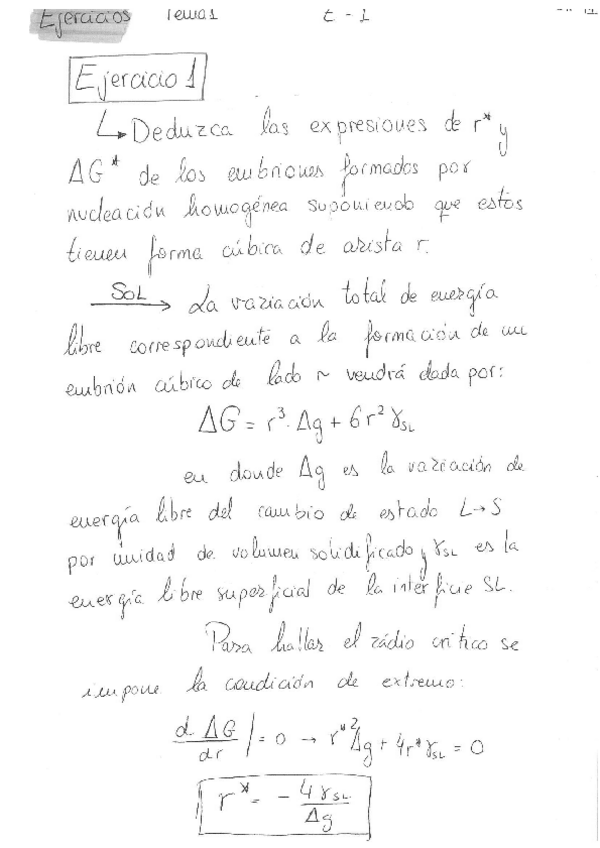 Ejercicios Tema 1 t - 1
Ejercicio 1
↳ Deduzca las expresiones de r* y
ΔG* de los embriones formados por
nucleación homogénea suponiendo que estos
tienen forma cúbica de arista r.
SOL → La variación total de energía
libre correspondiente a la formación de un
embrión cúbico de lado r vendrá dada por:
ΔG = r³·Δg + 6r² γSL
en donde Δg es la variación de
energía libre del cambio de estado L→S
por unidad de volumen solidificado y γSL es la
energía libre superficial de la interficie SL.
Para hallar el rádio crítico se
impone la condición de extremo:
d ΔG / dr | = 0 → r*² Δg + 4r* γSL = 0
r* = - 4 γSL / Δg